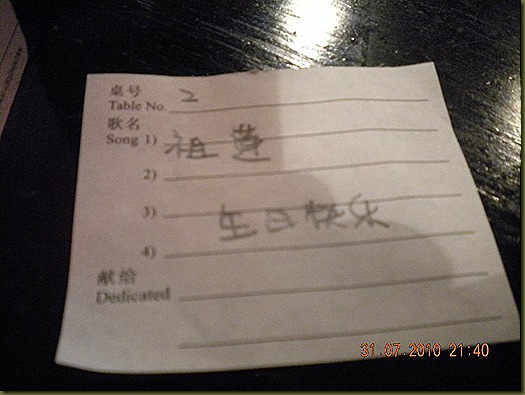 桌号
Table No. 2
歌名
Song 1) 祖莲
2)
3) 生日快乐
4)
献给
Dedicated
31.07.2010 21:40